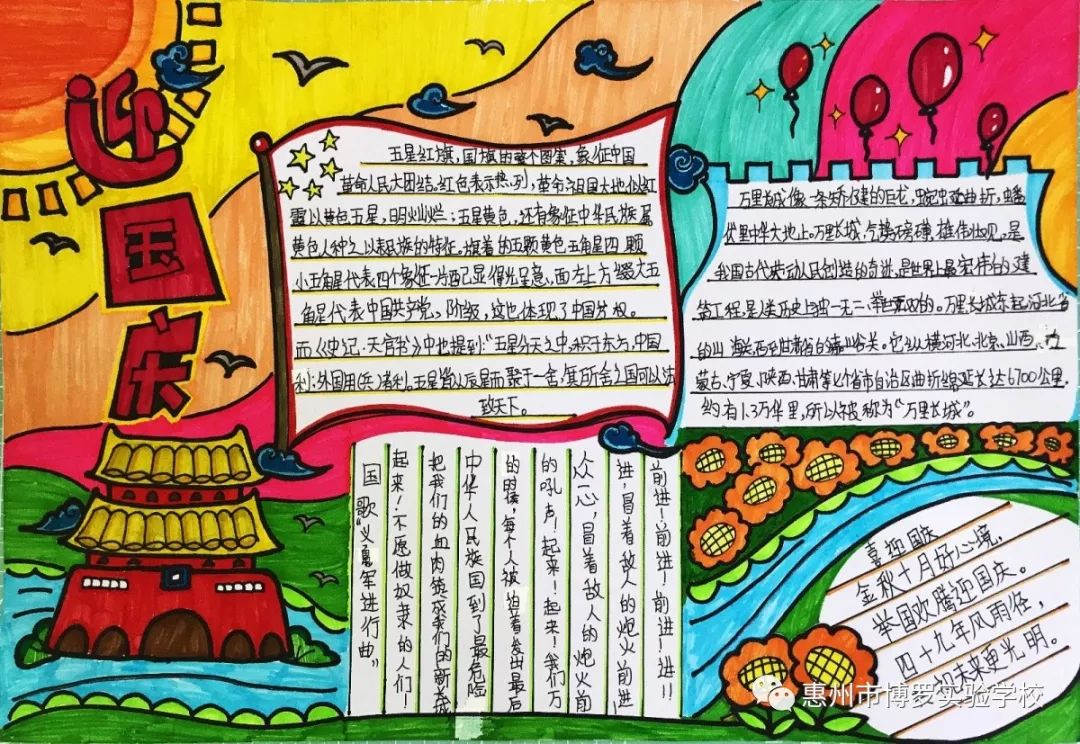 迎国庆
五星红旗,国旗的整个图案,象征中国
革命人民大团结。红色表示热列,革命
霞以黄色五星,明火灿烂;五星黄色,还有象征中华民族属
黄色人种之以表民族的特征。旗着的五颗黄色五角星四颗
小五角星代表四个象征
角星代表中国共产党、阶级,这也体现了中国
而《史记·天官书》中也提到:“五星分天之中,积于东方,中国
利;外国用(兵)者利。五星皆从辰星而聚于一舍,其所舍之国可以法
致天下。
万里长城像一条矫健的巨龙,蜿蜒曲折,蟠
伏里中华大地上。万里长城,气势磅礴,雄伟壮观,是
我国古代劳动人民创造的奇迹,是世界上最宏伟的建
筑工程,是人类历史上独一无二、举世无双的。万里长城东起河北省
的山海关,西到甘肃省的嘉峪关。它纵横河北、北京、山西、内
蒙古、宁夏、陕西、甘肃等七个省市自治区曲折绵延长达6700公里,
约有1.3万华里,所以被称为“万里长城”。
国歌“义勇军进行曲”
起来!不愿做奴隶的人们!
把我们的血肉筑成我们的新长城
中华人民族国到了最危险
的时候,每个人被迫着发出最后
的吼声!起来!起来!我们万
众一心,冒着敌人的炮火前
进,冒着敌人的炮火前进
前进!前进!前进!进!!
喜迎国庆
金秋十月好心境,
举国欢腾迎国庆。
四十九年风雨径,
初未来更光明。
惠州市博罗实验学校